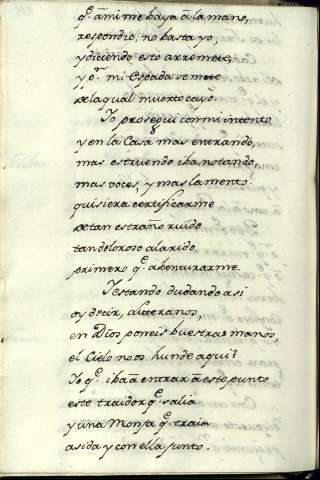 q.ᵉ â mi me haya â la mano,
respondio, no basta yo,
y diciendo esto arremete,
y p.ʳ mi Espada se mete
de la qual muerto cayò.
Yo prosegui con mi intento
y en la Casa mas entrando,
mas estruendo iba notando,
mas voces, y mas lamento.
quisiera certificarme
de tan estraño ruido
tan doloroso alarido,
primero q.ᵉ abenturarme.
Y estando dudando asi
oy decir, Luteranos,
en Dios poneis buestras manos,
el Cielo no os hunde aqui?
Yo q.ᵉ iba â entrar â este punto
este traidor q.ᵉ salia
y una Monja q.ᵉ traia
asida y con ella junto.